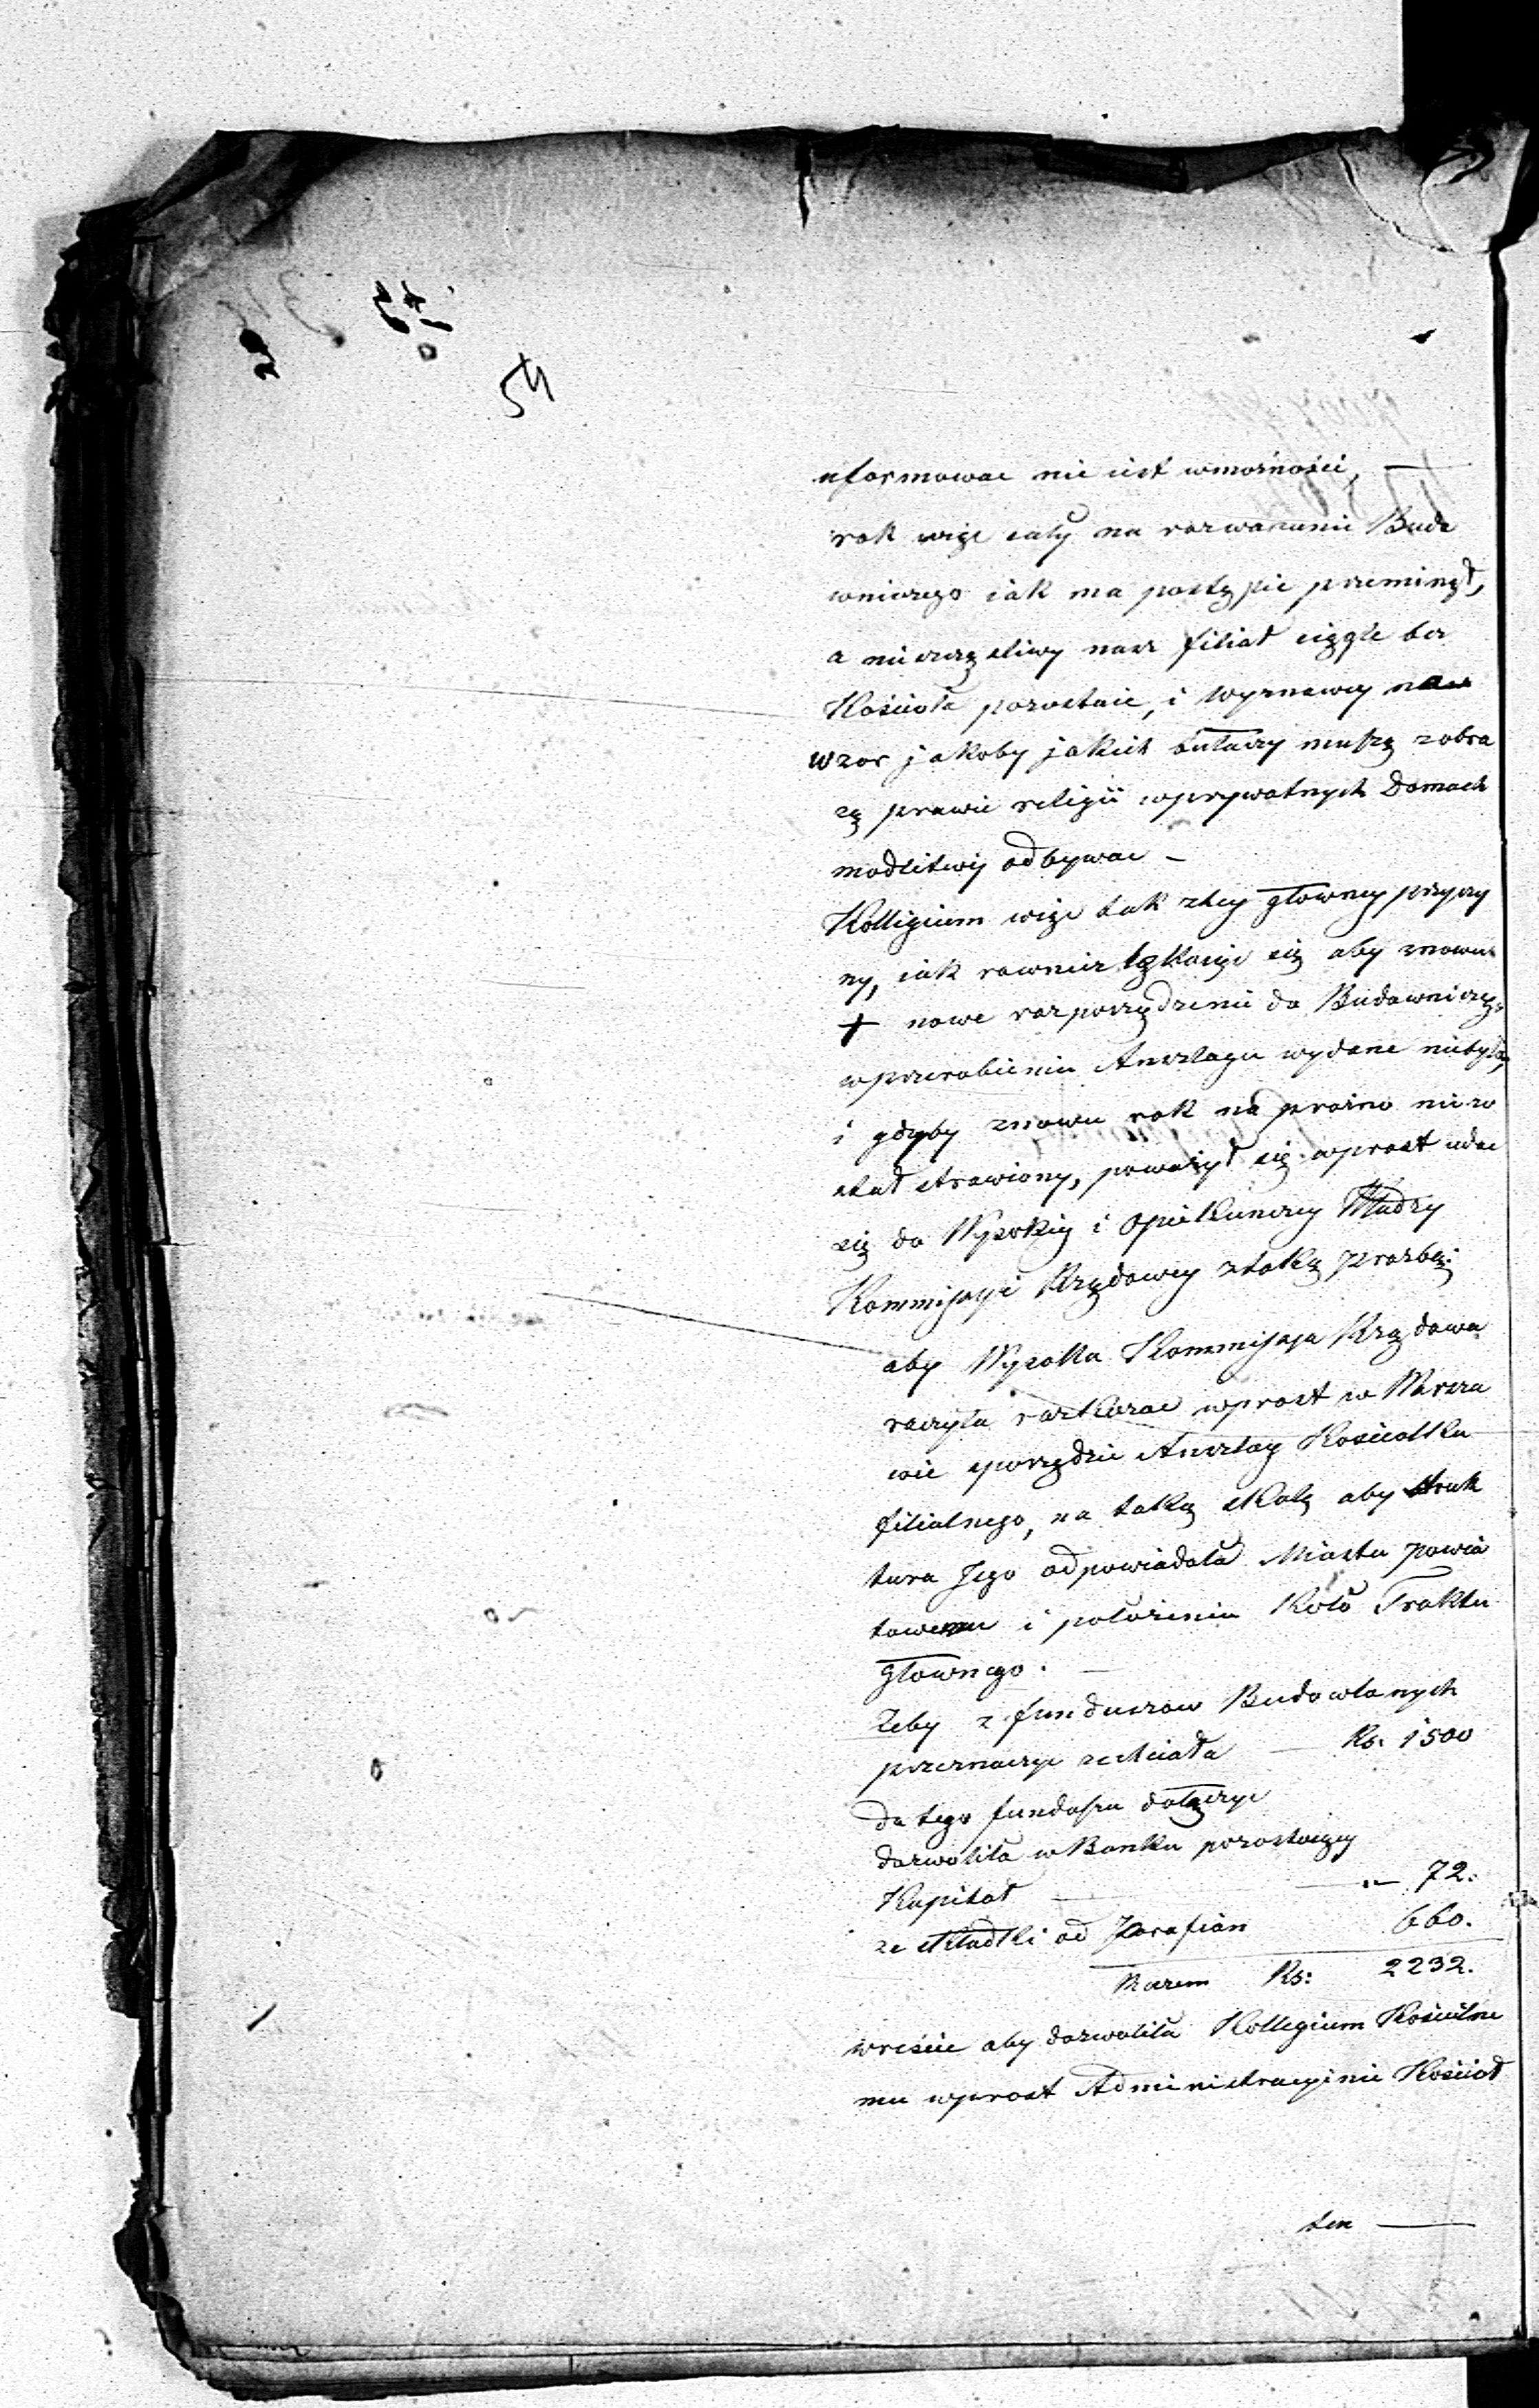 54
uformowac nie iest wmożności, —
rok więc cały na rozważaniu Budo
wniczego iak ma postąpic przeminął,
a nieszczęsliwy nasz filiał ciągle bez
Kościoła pozostaie, i Wyznawcy
wzor jakoby jakich tułaczy muszą z obra
zą prawie religii wprywatnych Domach
modlitwy odbywac —
Kollegium więc tak ztey głowney przyczy
ny, iak rownież lękaiąc się aby znowu
+ nowe rozporządzenie do Budowniczego
wprzerobieniu Anszlagu wydane niebyło,
i gdyby znowu rok na prożno niezo
stał strawiony, poważył się wprost udac
się do Wysokiey i Opiekunczey Władzy
Kommissyi Rządowey ztaką prozbą:
aby Wysoka Kommissya Rządowa
raczyła rozkazac wprost w Warsza
wie sporządzic Anszlag Kosciołka
filialnego, na taką skalę aby struk
tura Jego odpowiadała Miastu powia
towemu i położeniu Koło Traktu
głownego. —
Żeby z funduszow Budowlanych
przeznaczyc zechciała — Rs. 1500
do tego funduszu dołączyc
dozwoliła w Banku pozostaiący
Kapitał — " — 72.
ze składki od Parafian 660.
Razem Rs: 2232.
wreście aby dozwoliła Kollegium Kościelne
mu wprost Administracyinie Kościoł
ten —